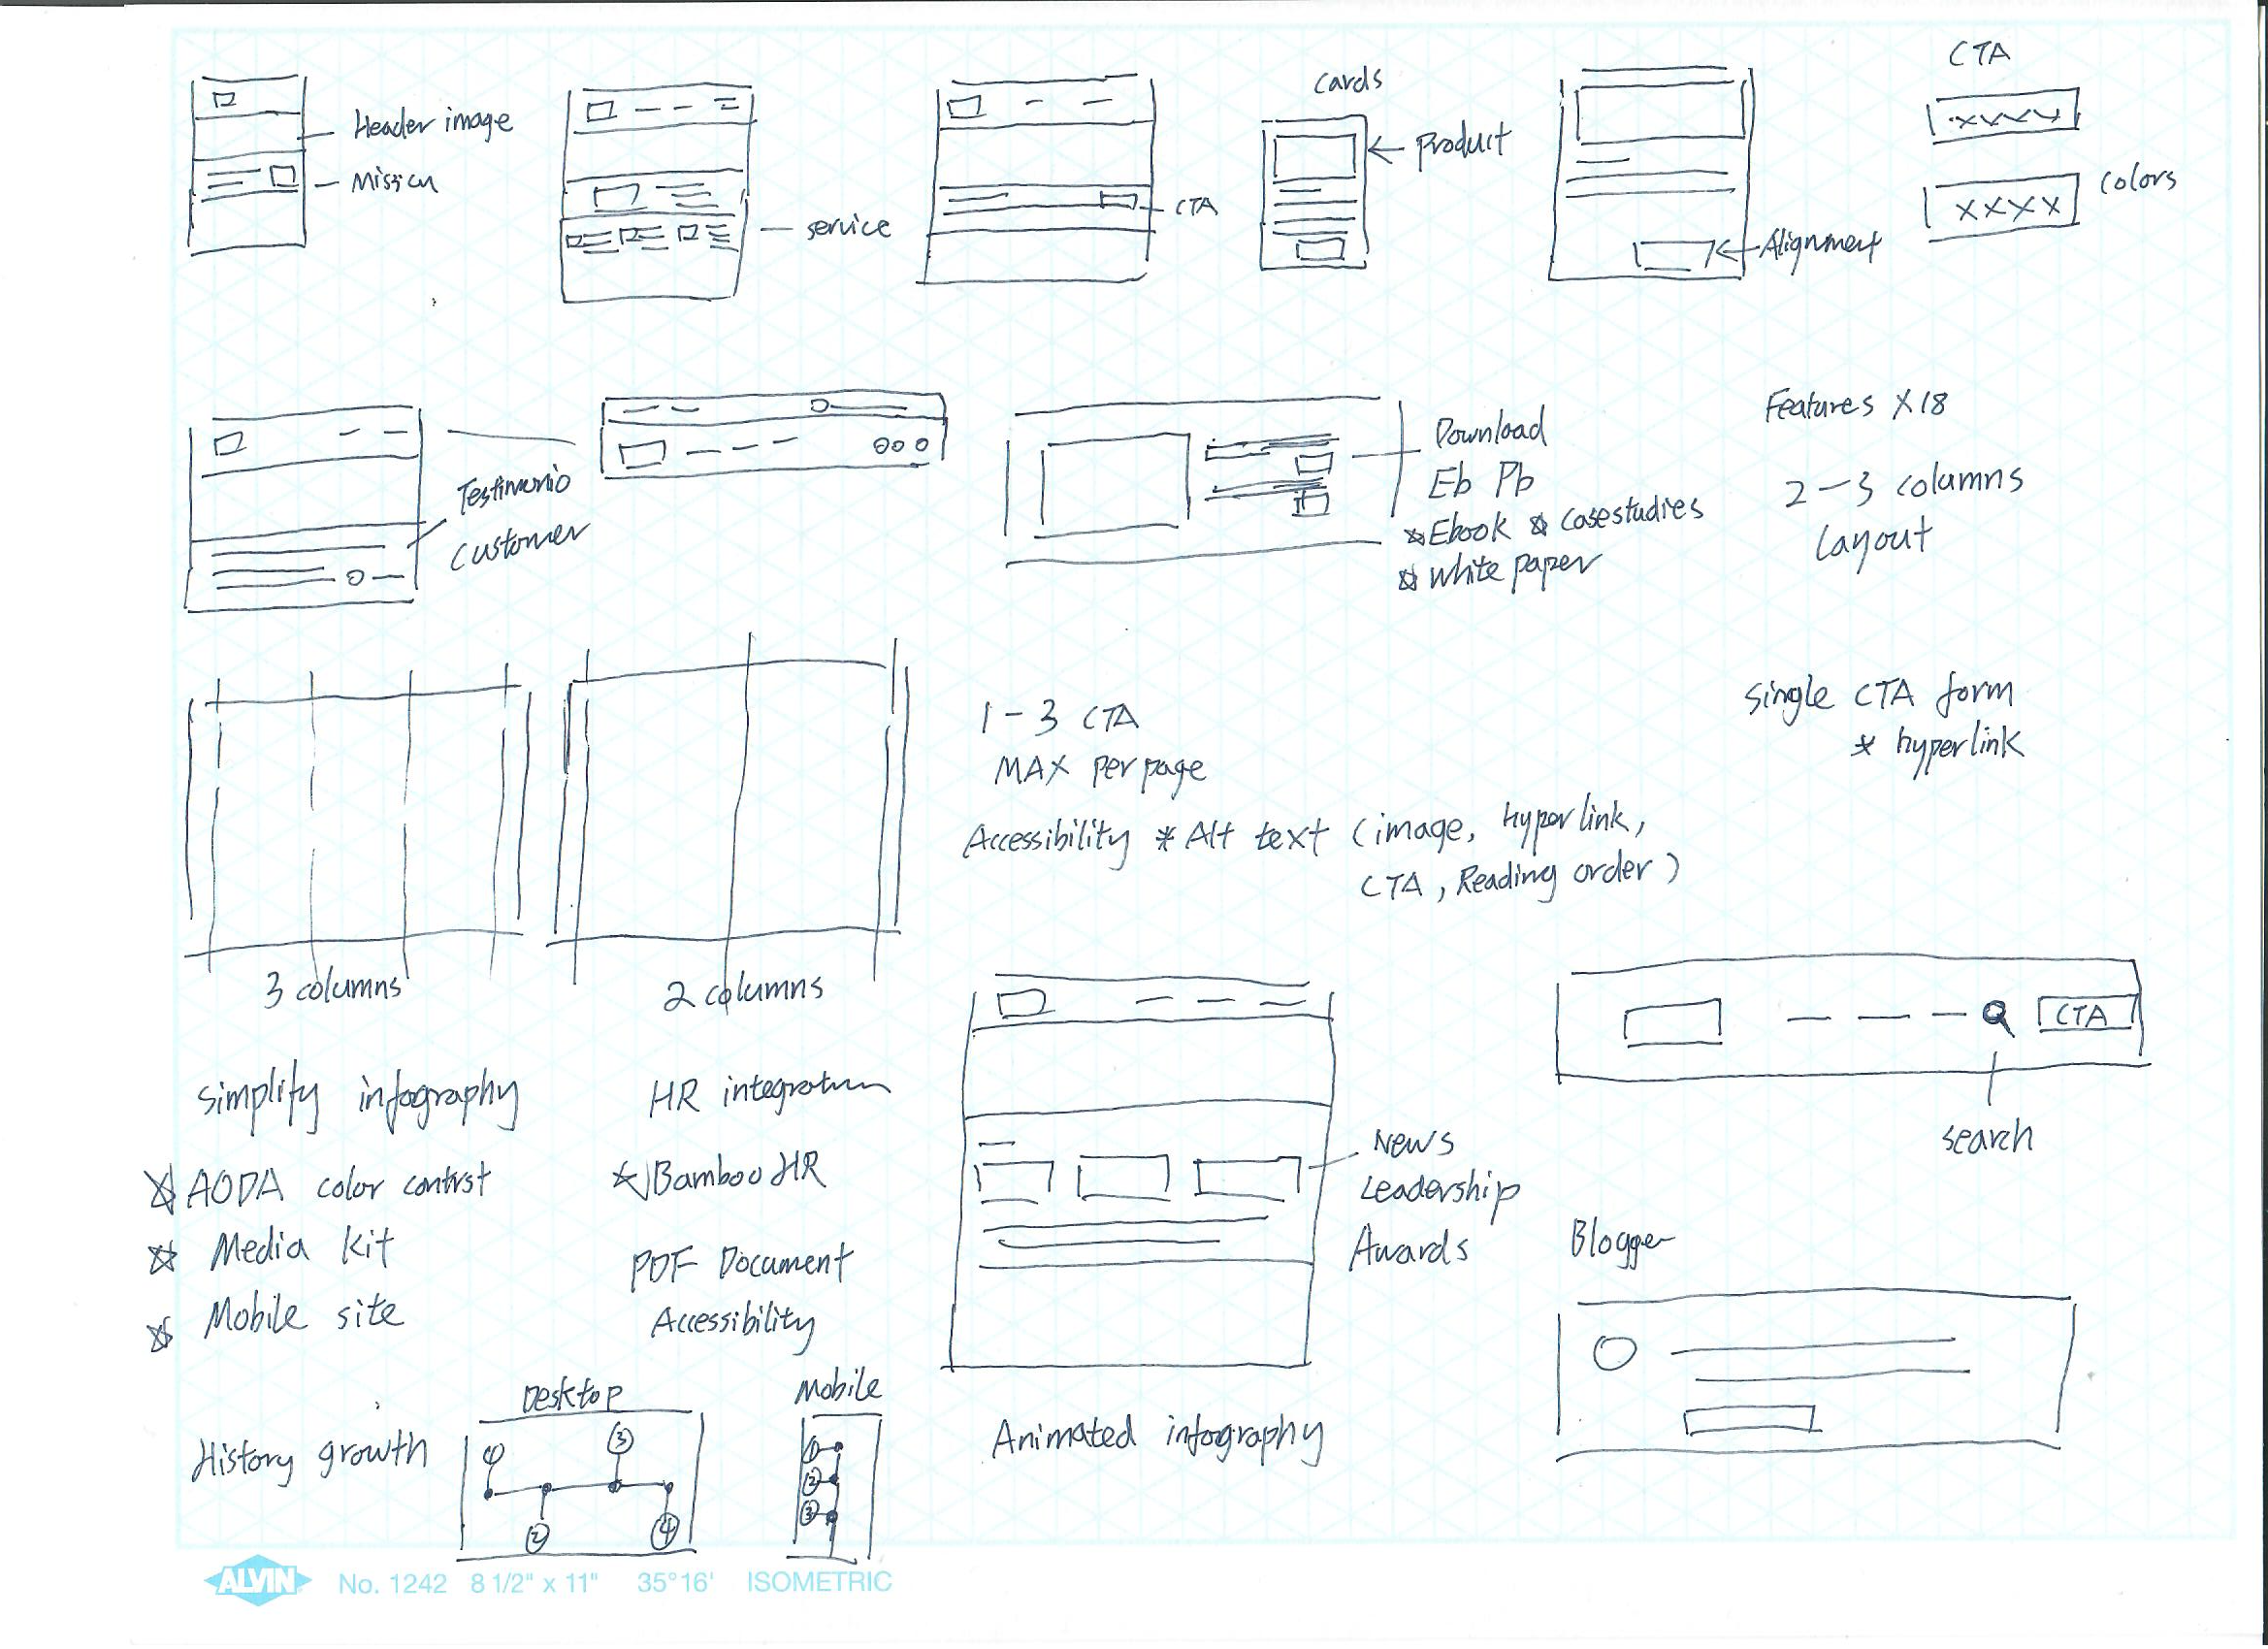 CTA
cards
Header image
Mission
service
CTA
Product
Alignment
xxxx
XXXX
colors
Testimonio
customer
Download
Eb Pb
Ebook
casestudies
white paper
Features X18
2-3 columns
Layout
3 columns
2 columns
1-3 CTA
MAX per page
Single CTA form
* hyperlink
Accessibility * Alt text (image, hyperlink,
CTA, Reading order)
CTA
search
simplify infography
AODA color contrst
Media kit
Mobile site
HR integration
BambooHR
PDF Document
Accessibility
News
Leadership
Awards
Blogger
History growth
Desktop
1
3
2
4
Mobile
1
2
3
Animated infography
ALVIN No. 1242 8 1/2" x 11" 35°16' ISOMETRIC